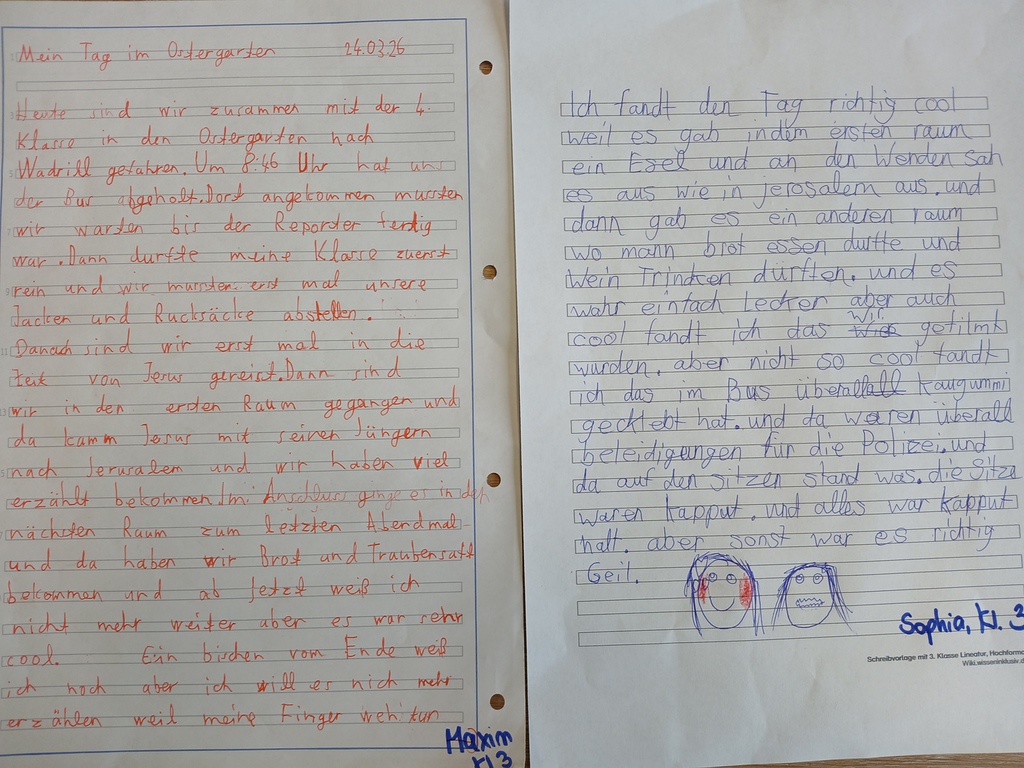 Mein Tag im Ostergarten 24.03.26
Heute sind wir zusammen mit der 4.
Klasse in den Ostergarten nach
Wadrill gefahren. Um 8:46 Uhr hat uns
der Bus abgeholt. Dort angekommen mussten
wir warten bis der Reporder fertig
war. Dann durfte meine Klasse zuerst
rein und wir mussten erst mal unsere
Jacken und Rucksäcke abstellen.
Danach sind wir erst mal in die
Zeit von Jesus gereist. Dann sind
wir in den ersten Raum gegangen und
da kamm Jesus mit seinen Jüngern
nach Jerusalem und wir haben viel
erzählt bekommen. Im Anschluss ginge es in den
nächsten Raum zum letzten Abendmal
und da haben wir Brot und Traubensaft
bekommen und ab Jetzt weiß ich
nicht mehr weiter aber es war sehr
cool. Ein bischen vom Ende weiß
ich noch aber ich will es nich mehr
erzählen weil meine Finger weh tun
Maxim
Kl 3
Ich fandt den Tag richtig cool
weil es gab indem ersten raum
ein Esel und an den Wenden sah
es aus wie in jerosalem aus. und
dann gab es ein anderen raum
wo mann brot essen durfte und
Wein Trinken dürften. und es
wahr einfach Lecker aber auch
cool fandt ich das wir gefilmt
wurden. aber nicht so cool fandt
ich das im Bus überallall Kaugummi
gecklebt hat. und da waren überall
beleidigungen für die Polizei. und
da auf den sitzen stand was. die Sitze
waren kapput. und alles war kapput
halt. aber sonst war es richtig
Geil.
Sophia, Kl. 3
Schreibvorlage mit 3. Klasse Lineatur, Hochforma
Wiki.wisseninklusiv.d